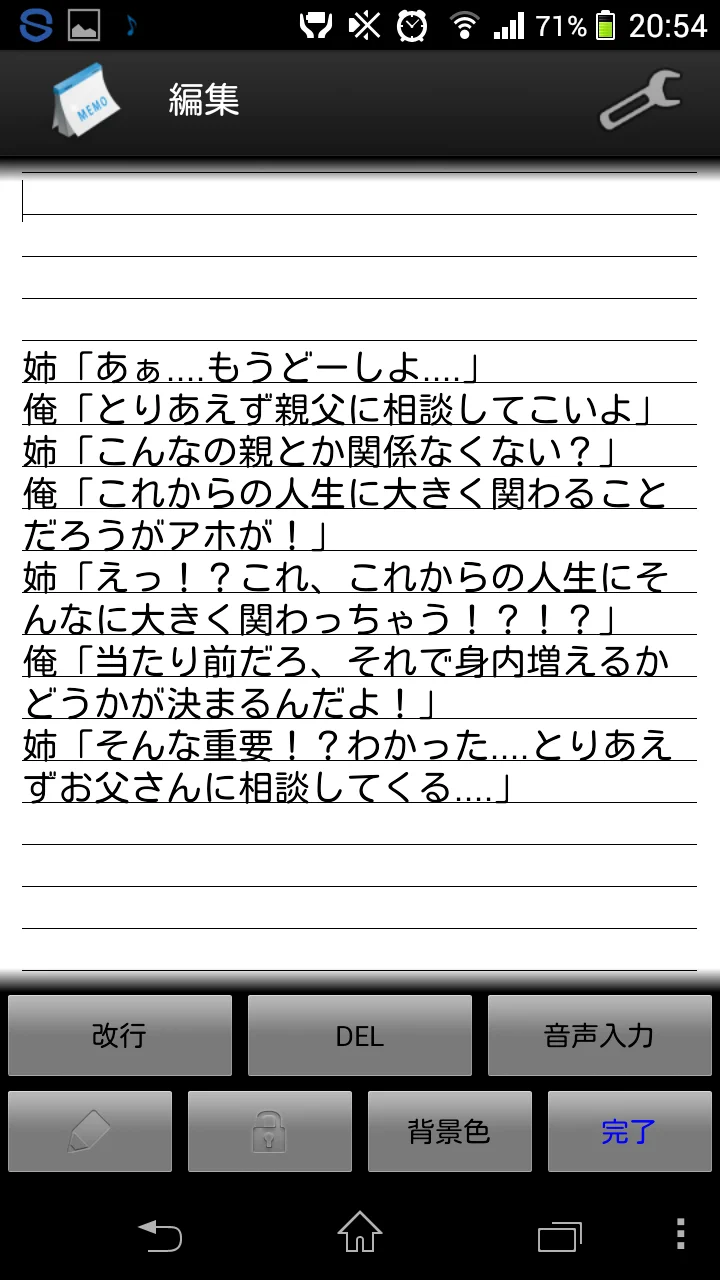 71% 20:54
MEMO 編集
姉「あぁ....もうどーしよ....」
俺「とりあえず親父に相談してこいよ」
姉「こんなの親とか関係なくない？」
俺「これからの人生に大きく関わること
だろうがアホが！」
姉「えっ！？これ、これからの人生にそ
んなに大きく関わっちゃう！？！？」
俺「当たり前だろ、それで身内増えるか
どうかが決まるんだよ！」
姉「そんな重要！？わかった....とりあえ
ずお父さんに相談してくる....」
改行 DEL 音声入力
背景色 完了